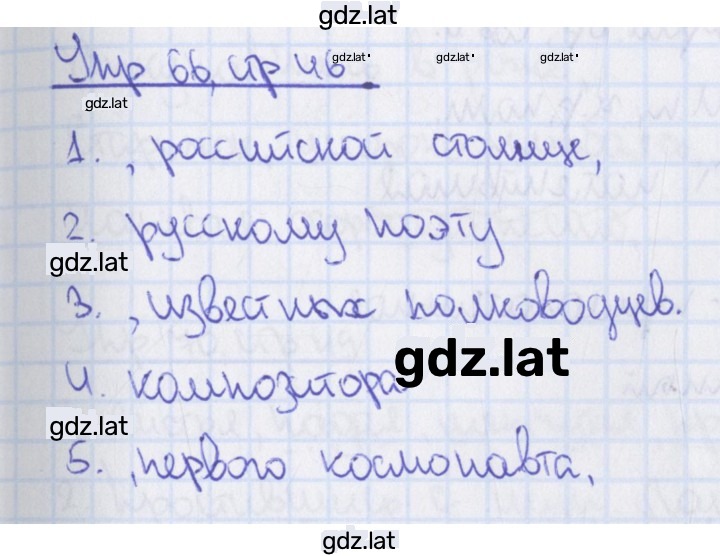 gdz.lat
Упр 66, стр 46
gdz.lat gdz.lat gdz.lat
gdz.lat
1. , российской столице,
2. русскому поэту
gdz.lat
3. , известных полководцев.
gdz.lat
4. композитора
gdz.lat
5. , первого космонавта,
gdz.lat